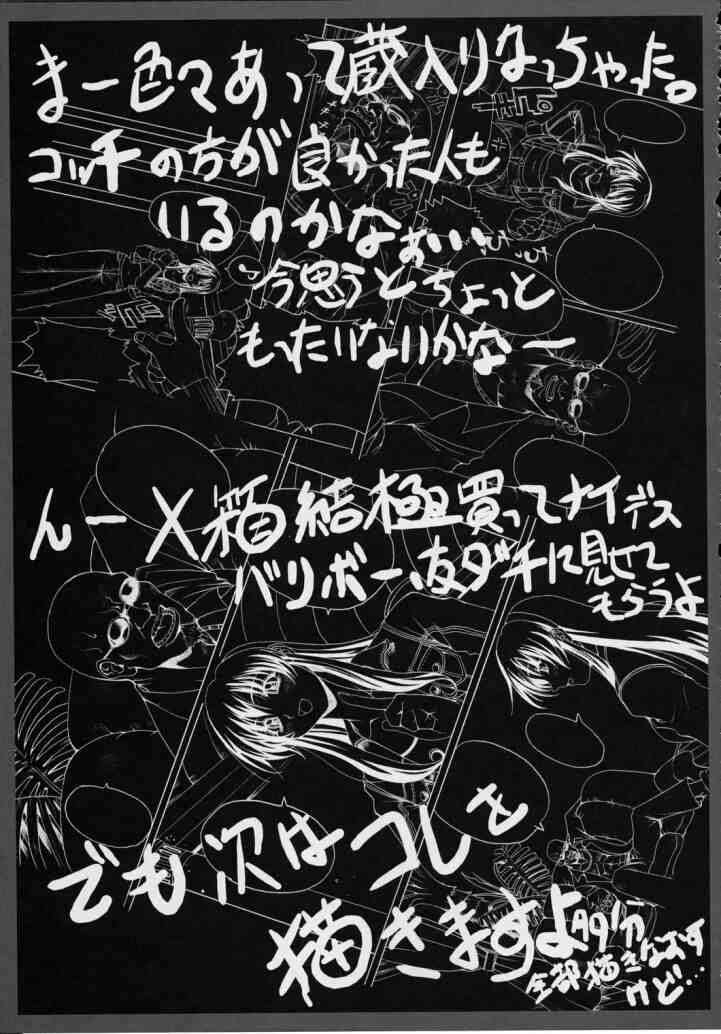 まー色々あって蔵入りなっちゃった。
コッチの方が良かった人も
いるのかなぉ...
今思うとちょっと
もったいないかなー
んーX箱結極買ってナイデス
バリボー、友ダチに見せて
もらうよ
でも次はコレを
描きますよ多分
全部描きなおす
けど…